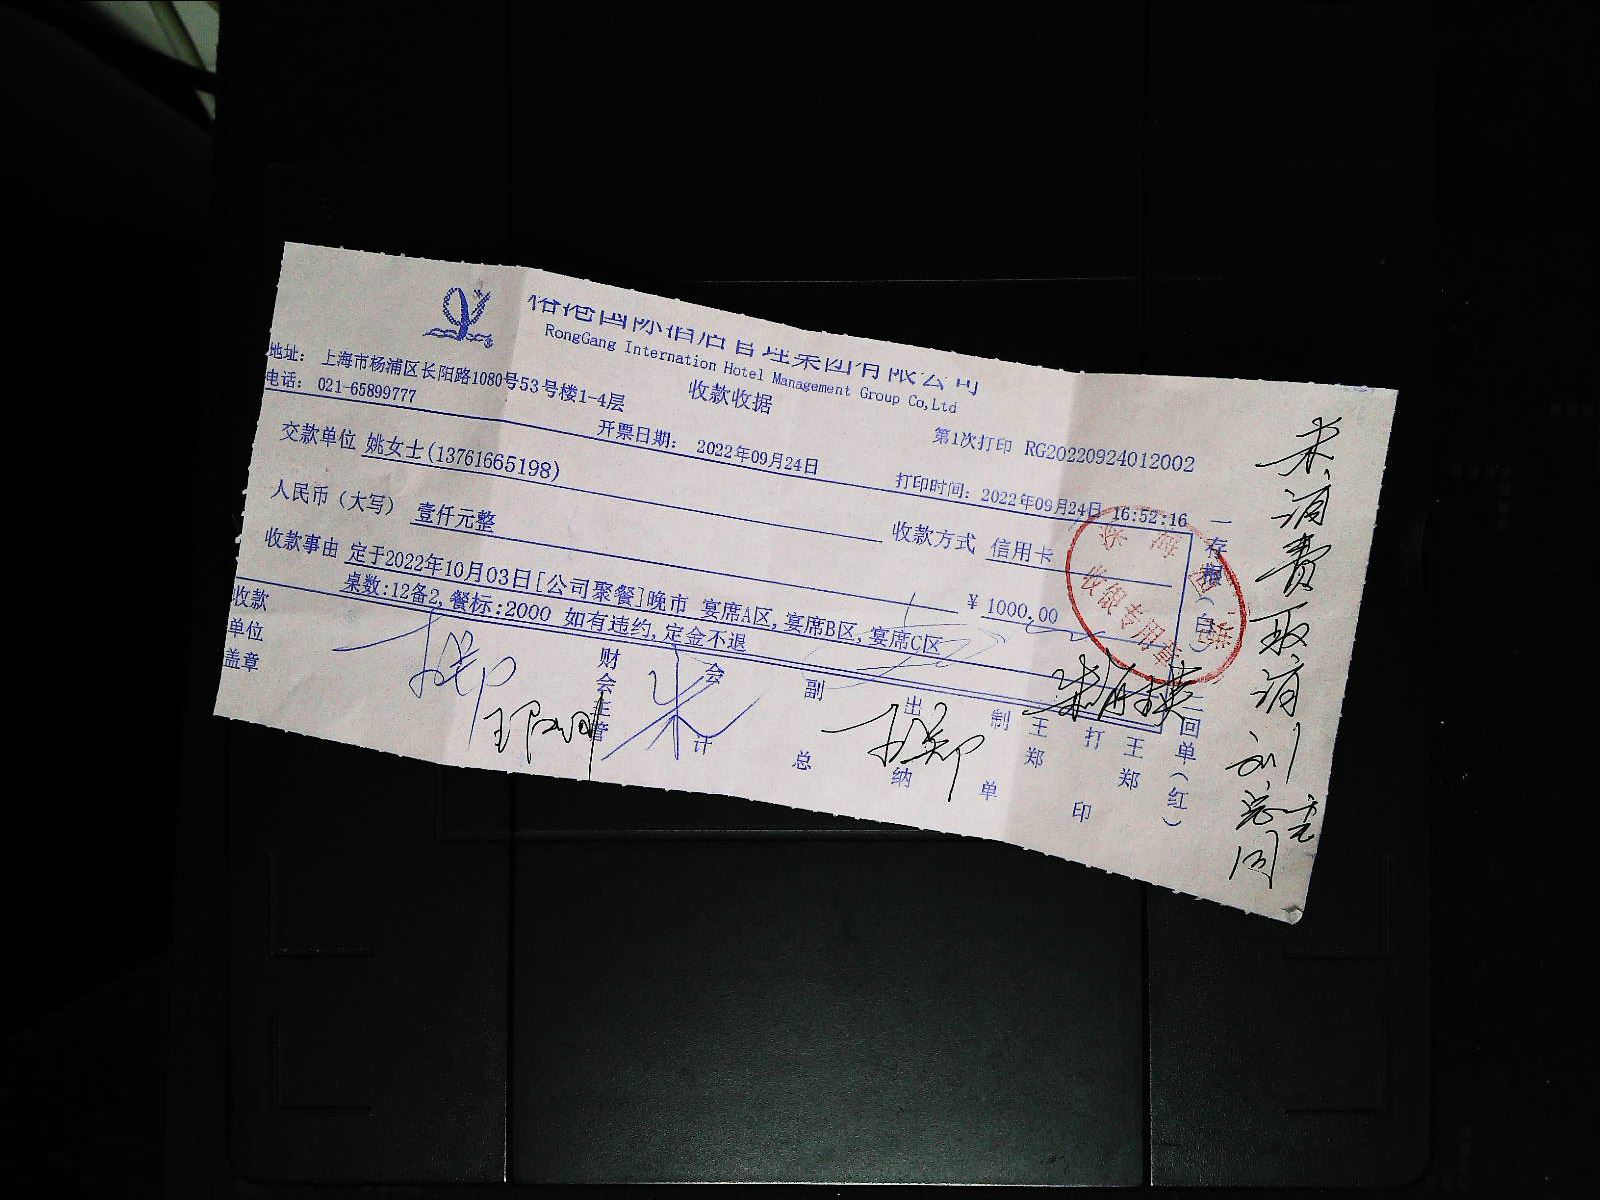 国际酒店管理集团有限公司
RongGang Internation Hotel Management Group Co,Ltd
地址: 上海市杨浦区长阳路1080号53号楼1-4层
收款收据
电话: 021-65899777
开票日期: 2022年09月24日
第1次打印 RG20220924012002
打印时间: 2022年09月24日 16:52:16
交款单位 姚女士(13761665198)
收款方式 信用卡
人民币（大写） 壹仟元整
¥ 1000.00
收款事由 定于2022年10月03日[公司聚餐]晚市 宴席A区,宴席B区,宴席C区
桌数:12备2,餐标:2000 如有违约,定金不退
收款单位盖章
财会主管
会计
副总
出纳
制单
王郑
打印
王郑
一存根(白)
二回单(红)
收银专用章
未消费取消